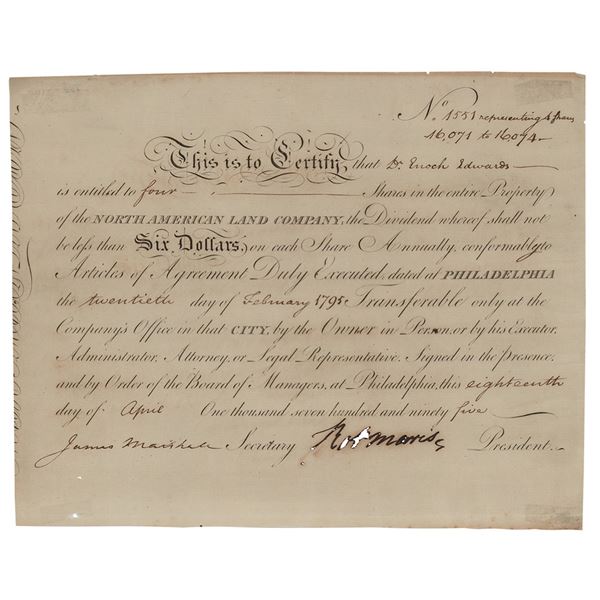 No 1551 representing 4 shares
16,071 to 16,074
This is to Certify, that Dr. Enoch Edwards
is entitled to four Shares in the entire Property
of the NORTH AMERICAN LAND COMPANY, the Dividend whereof shall not
be less than Six Dollars, on each Share Annually, conformably to
Articles of Agreement Duly Executed, dated at PHILADELPHIA
the twentieth day of February 1795 Transferable only at the
Company's Office in that CITY, by the Owner in Person, or by his Executor,
Administrator, Attorney, or Legal Representative. Signed in the presence,
and by Order of the Board of Managers, at Philadelphia, this eighteenth
day of April One thousand seven hundred and ninety five
James Marshall Secretary Rob Morris President.